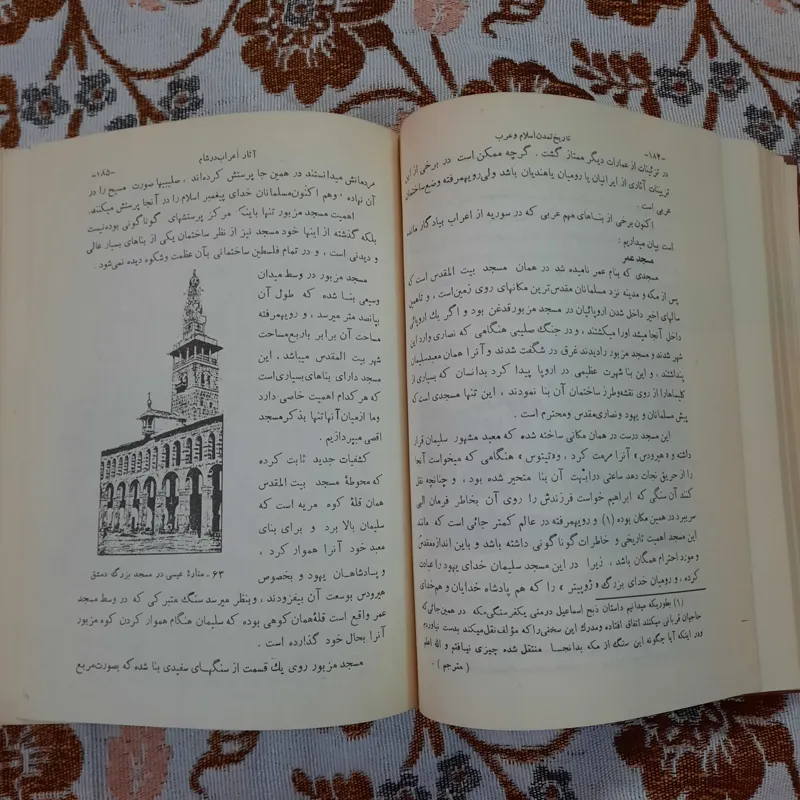 -۱۸۴- تاریخ تمدن اسلام و عرب
در تزئینات از عمارات دیگر ممتاز گشت . گرچه ممکن است در برخی از این
تزیینات آثاری از ایرانیان یا رومیان یاهندیان باشد ولی رویهمرفته وضع ساختمان
عربی است .
اکنون برخی از بناهای مهم عربی که در سوریه از اعراب بیادگار مانده
است بیان میداریم :
مسجد عمر
مسجدی که بنام عمر نامیده شد در همان مسجد بیت المقدس است که
پس از مکه و مدینه نزد مسلمانان مقدس‌ترین مکانهای روی زمین است ، و تاهمین
سالهای اخیر داخل شدن اروپائیان در مسجد مزبور قدغن بود و اگر یك اروپائی
داخل آنجا میشد اورا میکشتند ، و در جنگ صلیبی هنگامی که نصاری وارد این
شهر شدند و مسجد مزبور را دیدند غرق در شگفت شدند و آنرا همان معبد سلیمان
پنداشتند ، و این بنا شهرت عظیمی در اروپا پیدا کرد بدانسان که بسیاری از
کلیساها را از روی نقشه‌و طرز ساختمان آن بنا نمودند ، این تنها مسجدی است که
پیش مسلمانان و یهود و نصاری مقدس و محترم است .
این مسجد درست در همان مکانی ساخته شده که معبد مشهور سلیمان قرار
داشته و «هیرودس» آنرا مرمت کرد ، و «تیتوس» هنگامی که میخواست آنجا
را از حریق نجات دهد ساعتی در ابّهت آن بنا متحیر شده بود ، و چنانچه نقل
کنند آن سنگی که ابراهیم خواست فرزندش را روی آن بخاطر فرمان الهی
سرببرد در همین مکان بوده (۱) و رویهمرفته در عالم کمتر جائی است که مانند
این مسجد اهمیت تاریخی و خاطرات گوناگونی داشته باشد و باین اندازه مقدس
و مورد احترام همگان باشد ، زیرا در این مسجد سلیمان خدای یهود را عبادت
کرده ، و رومیان خدای بزرگ « ژوپیتر » را که هم پادشاه خدایان و هم خدای
(۱) بطوریکه میدانیم داستان ذبح اسماعیل در منی یکفرسنگی مکه در همین جائی که
حاجیان قربانی میکنند اتفاق افتاده و مدرك این سخنی را که مؤلف نقل میکند بدست نیاوردیم
و در اینکه آیا چگونه این سنگ از مکه بدانجا منتقل شده چیزی نیافتم و الله اعلم
( مترجم ) .
آثار اعراب در شام -۱۸۵-
مردمانش میدانستند در همین جا پرستش کرده‌اند ، صلیبیها صورت مسیح را در
آن نهاده ، وهم اکنون مسلمانان خدای پیغمبر اسلام را در آنجا پرستش میکنند .
اهمیت مسجد مزبور تنها باینکه مرکز پرستشهای گوناگونی بوده نیست
بلکه گذشته از اینها خود مسجد نیز از نظر ساختمان یکی از بناهای بسیار عالی
و دیدنی است ، و در تمام فلسطین ساختمانی بآن عظمت و شکوه دیده نمی‌شود .
مسجد مزبور در وسط میدان
وسیعی بنا شده که طول آن
پانصد متر میرسد ، و رویهمرفته
مساحت آن برابر باربع مساحت
شهر بیت المقدس میباشد ، این
مسجد دارای بناهای بسیاری است
که هرکدام اهمیت خاصی دارد
وما ازمیان آنها تنها بذکر مسجد
اقصی میپردازیم .
کشفیات جدید ثابت کرده
که محوطهٔ مسجد بیت المقدس
همان قلهٔ کوه مریه است که
سلیمان بالا برد و برای بنای
معبد خود آنرا هموار کرد ،
و پادشاهان یهود و بخصوص
۶۳ - منارهٔ عیسی در مسجد بزرگ دمشق
هیرودس بوسعت آن بیفزودند ، وبنظر میرسد سنگ متبرکی که در وسط مسجد
عمر واقع است قلهٔ همان کوهی بوده که سلیمان هنگام هموار کردن کوه مزبور
آنرا بحال خود گذارده است .
مسجد مزبور روی یك قسمت از سنگهای سفیدی بنا شده که بصورت مربع